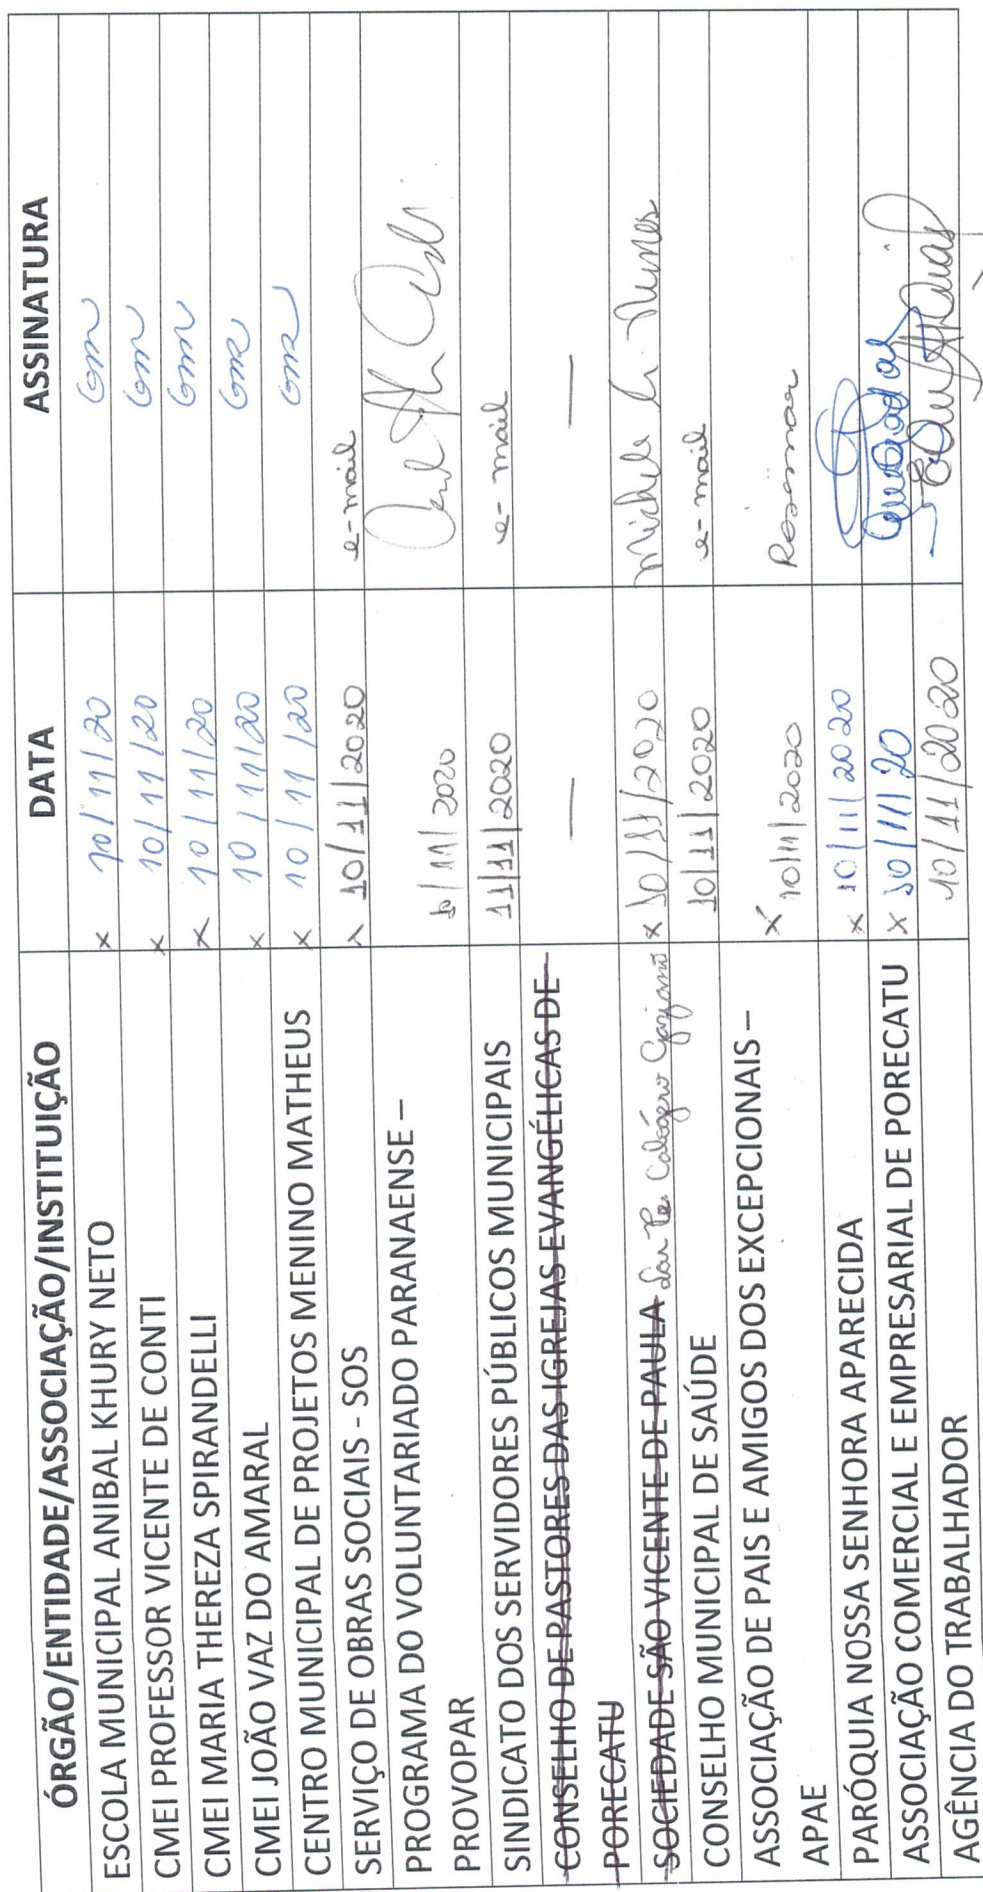 ÓRGÃO/ENTIDADE/ASSOCIAÇÃO/INSTITUIÇÃO DATA ASSINATURA
ESCOLA MUNICIPAL ANIBAL KHURY NETO x 10/11/20
CMEI PROFESSOR VICENTE DE CONTI x 10/11/20
CMEI MARIA THEREZA SPIRANDELLI x 10/11/20
CMEI JOÃO VAZ DO AMARAL x 10/11/20
CENTRO MUNICIPAL DE PROJETOS MENINO MATHEUS x 10/11/20
SERVIÇO DE OBRAS SOCIAIS - SOS x 10/11/2020 e-mail
PROGRAMA DO VOLUNTARIADO PARANAENSE –
PROVOPAR 10/11/2020
SINDICATO DOS SERVIDORES PÚBLICOS MUNICIPAIS 11/11/2020 e-mail
CONSELHO DE PASTORES DAS IGREJAS EVANGÉLICAS DE — —
PORECATU
SOCIEDADE SÃO VICENTE DE PAULA Lar Pe Calógero Gaziano x 10/11/2020 Michele Nunes
CONSELHO MUNICIPAL DE SAÚDE 10/11/2020 e-mail
ASSOCIAÇÃO DE PAIS E AMIGOS DOS EXCEPCIONAIS – x 10/11/2020 Rosimar
APAE
PARÓQUIA NOSSA SENHORA APARECIDA x 10/11/2020
ASSOCIAÇÃO COMERCIAL E EMPRESARIAL DE PORECATU x 10/11/20
AGÊNCIA DO TRABALHADOR 10/11/2020